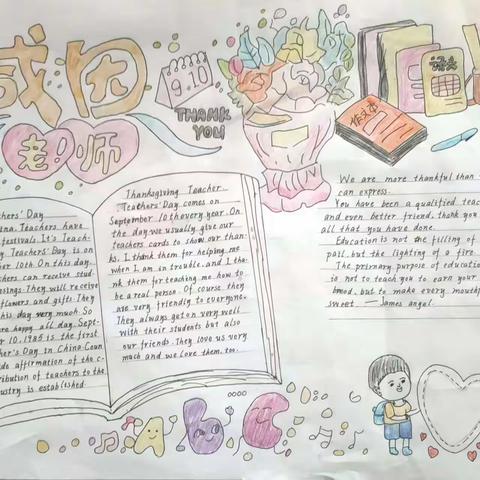 感恩
老师
9.10
THANK
YOU
语文
作文本
chers' Day
ina. Teachers have
festivals. It's Teach-
y. Teachers' Day is on
ber 10th. On this day.
chers can receive stud-
ssings. They will receive
flowers and gifts. They
this day very much. So
are happy all day. Sept-
r 10. 1985 is the first
cher's Day in China. Coun
ide affirmation of the c-
tribution of teachers to the
ustry is established.
Thanksgiving Teacher
Teathers' Day comes on
September 10th every year. On
the day. we usually give our
teachers cards to show our than-
ks. I thank them for helping me
when I am in trouble. and I tha-
nk them for teaching me how to
be a real person. Of course they
are very friendly to everyone.
They always get on very well
with their students but also
our friends. They love us very
much and we love them. too.
We are more thankful than
can express.
You have been a qualified teac
and even better friend. thank you
all that you have done.
Education is not the filling of
pail. but the lighting of a fire.
The prirnary purpose of educatio
is not to teach you to earn your
bread. but to make every mouthf
sweet. — James angel.
A b C